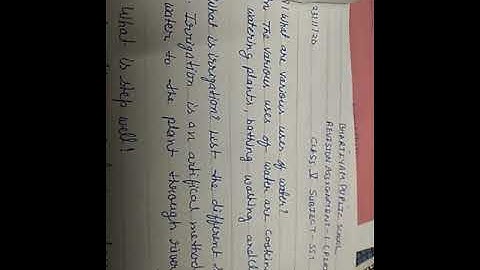 BHARTIYAM PUBLIC SCHOOL
REVISION ASSIGNMENT-1
CLASS V SUBJECT- SST
23/11/20
What are various uses of water?
The various uses of water are cookin
watering plants, bathing washing and
What is irrigation? List the different
Irrigation is an artifical method
water to the plant through river
What is step well?